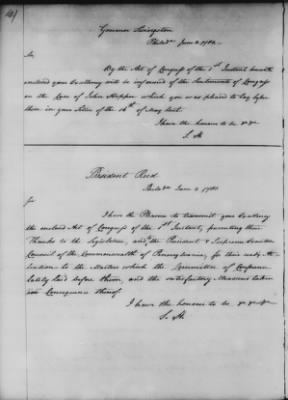 Governor Livingston
Philada June 2, 1780.
Sir,
By the Act of Congress of the 1st Instant herewith
enclosed your Excellency will be informed of the Sentiments of Congress
on the Case of John Hopper which you was pleased to lay before
them in your Letter of the 16th of May last.
I have the honour to be &c &c
S. H.
President Reed
Philada June 2, 1780
Sir
I have the Honour to transmit your Excellency
the enclosed Act of Congress of the 1st Instant, presenting their
Thanks to the Legislature, and the President & Supreme Executive
Council of the Commonwealth of Pennsylvania, for their ready At-
tention to the Matters which the Committee of Congress
lately laid before them, and the satisfactory Measures taken
in Consequence thereof
I have the honour to be &c &c &c
S. H.